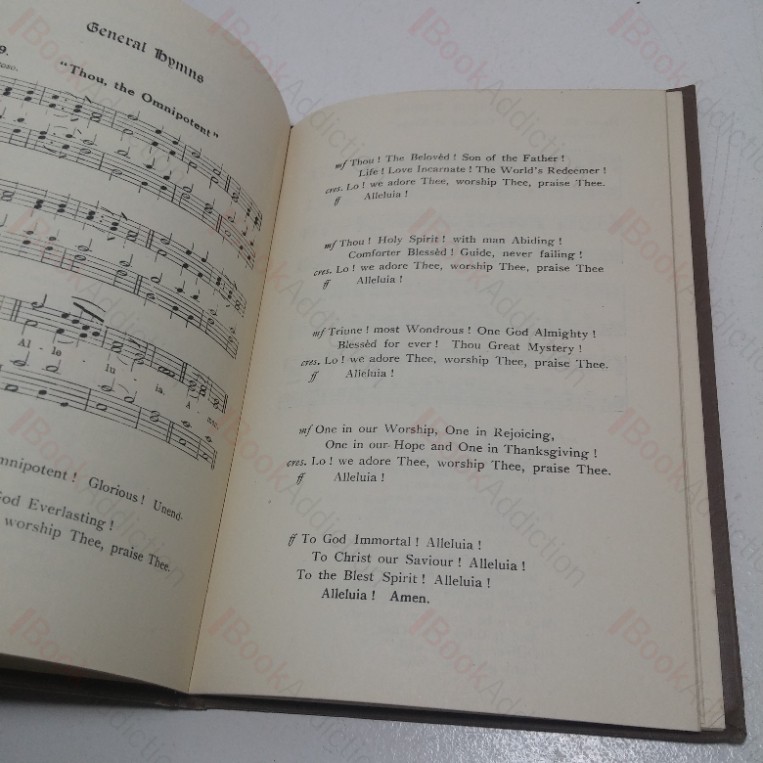 General Hymns
9.
"Thou, the Omnipotent"
Al - le - lu - ia. A - men.
mnipotent! Glorious! Unend-
God Everlasting!
worship Thee, praise Thee.
mf Thou! The Belovèd! Son of the Father!
Life! Love Incarnate! The World's Redeemer!
cres. Lo! we adore Thee, worship Thee, praise Thee.
ff Alleluia!
mf Thou! Holy Spirit! with man Abiding!
Comforter Blessèd! Guide, never failing!
cres. Lo! we adore Thee, worship Thee, praise Thee
ff Alleluia!
mf Triune! most Wondrous! One God Almighty!
Blessèd for ever! Thou Great Mystery!
cres. Lo! we adore Thee, worship Thee, praise Thee.
ff Alleluia!
mf One in our Worship, One in Rejoicing,
One in our Hope and One in Thanksgiving!
cres. Lo! we adore Thee, worship Thee, praise Thee.
ff Alleluia!
ff To God Immortal! Alleluia!
To Christ our Saviour! Alleluia!
To the Blest Spirit! Alleluia!
Alleluia! Amen.
BookAddiction